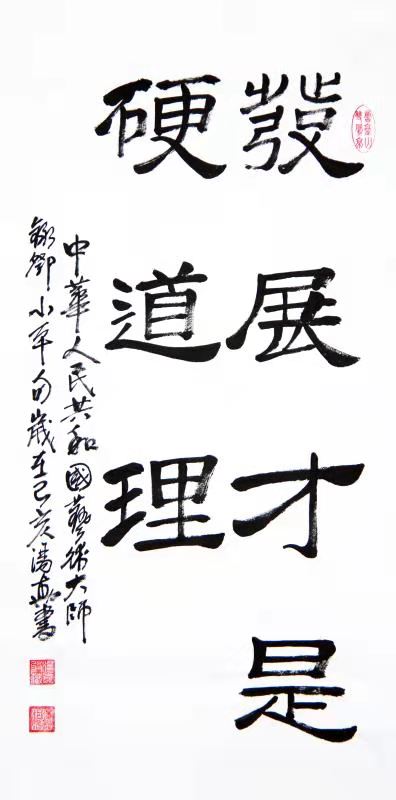 發展才是
硬道理
中華人民共和國藝術大師
錄鄧小平句歲在己亥湯真書